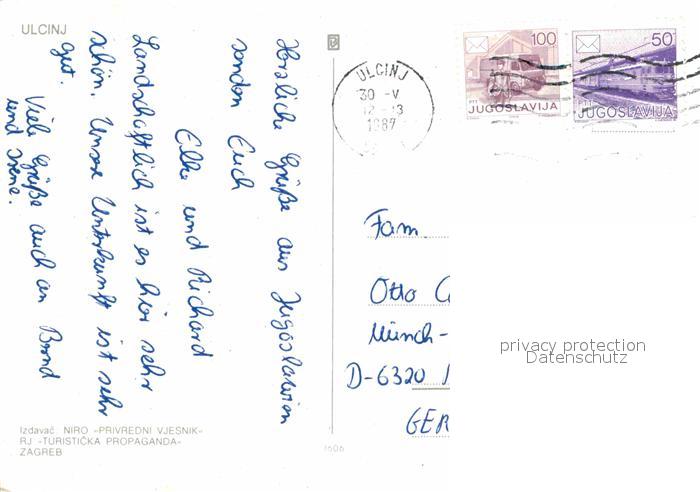 ULCINJ
Herzliche Grüße aus Jugoslawien
senden Euch
Elke und Richard
Landschaftlich ist es hier sehr
schön. Unsere Unterkunft ist sehr
gut.
Viele Grüße auch an Bernd
und Irene.
Izdavač: NIRO »PRIVREDNI VJESNIK«
RJ »TURISTIČKA PROPAGANDA«
ZAGREB
1606
ULCINJ
30 -V
12 - 13
1987
100
PTT
JUGOSLAVIJA
50
PTT
JUGOSLAVIJA
Fam.
Otto
Münch-
D-6320
GER
privacy protection
Datenschutz